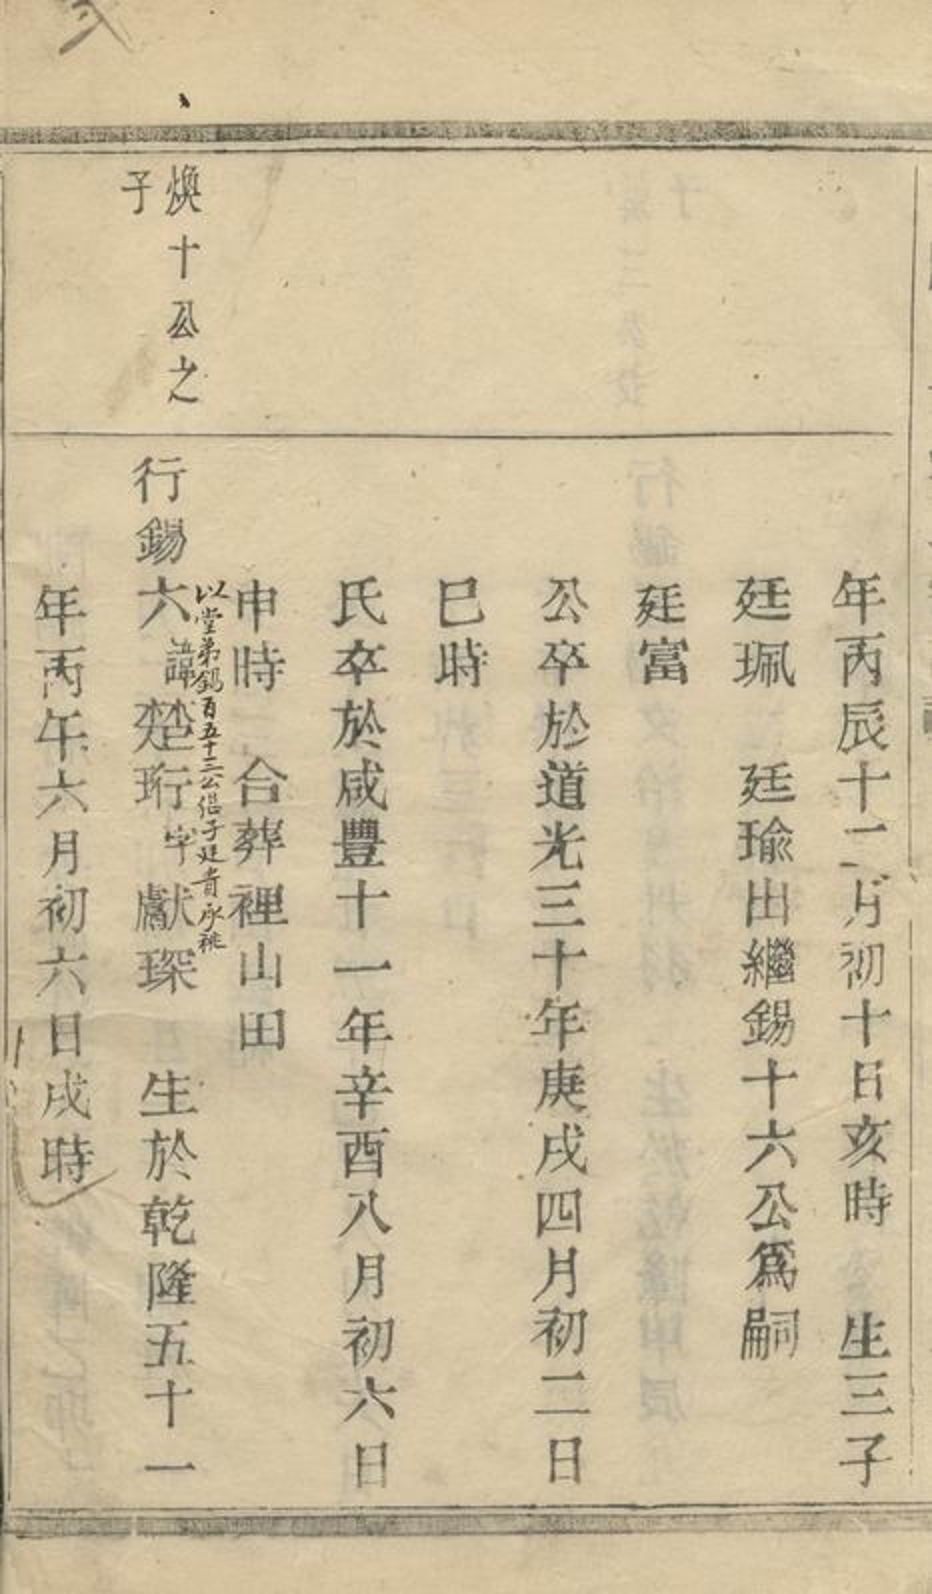 年丙辰十二月初十日亥時　生三子
廷珮　廷瑜出繼錫十六公爲嗣
廷富
公卒於道光三十年庚戌四月初二日
巳時
氏卒於咸豐十一年辛酉八月初六日
申時　合葬裡山田
以堂弟錫百五十三公侣子廷青承祧
煥十公之
子
行錫六諱楚珩字獻琛　生於乾隆五十一
年丙午六月初六日戌時